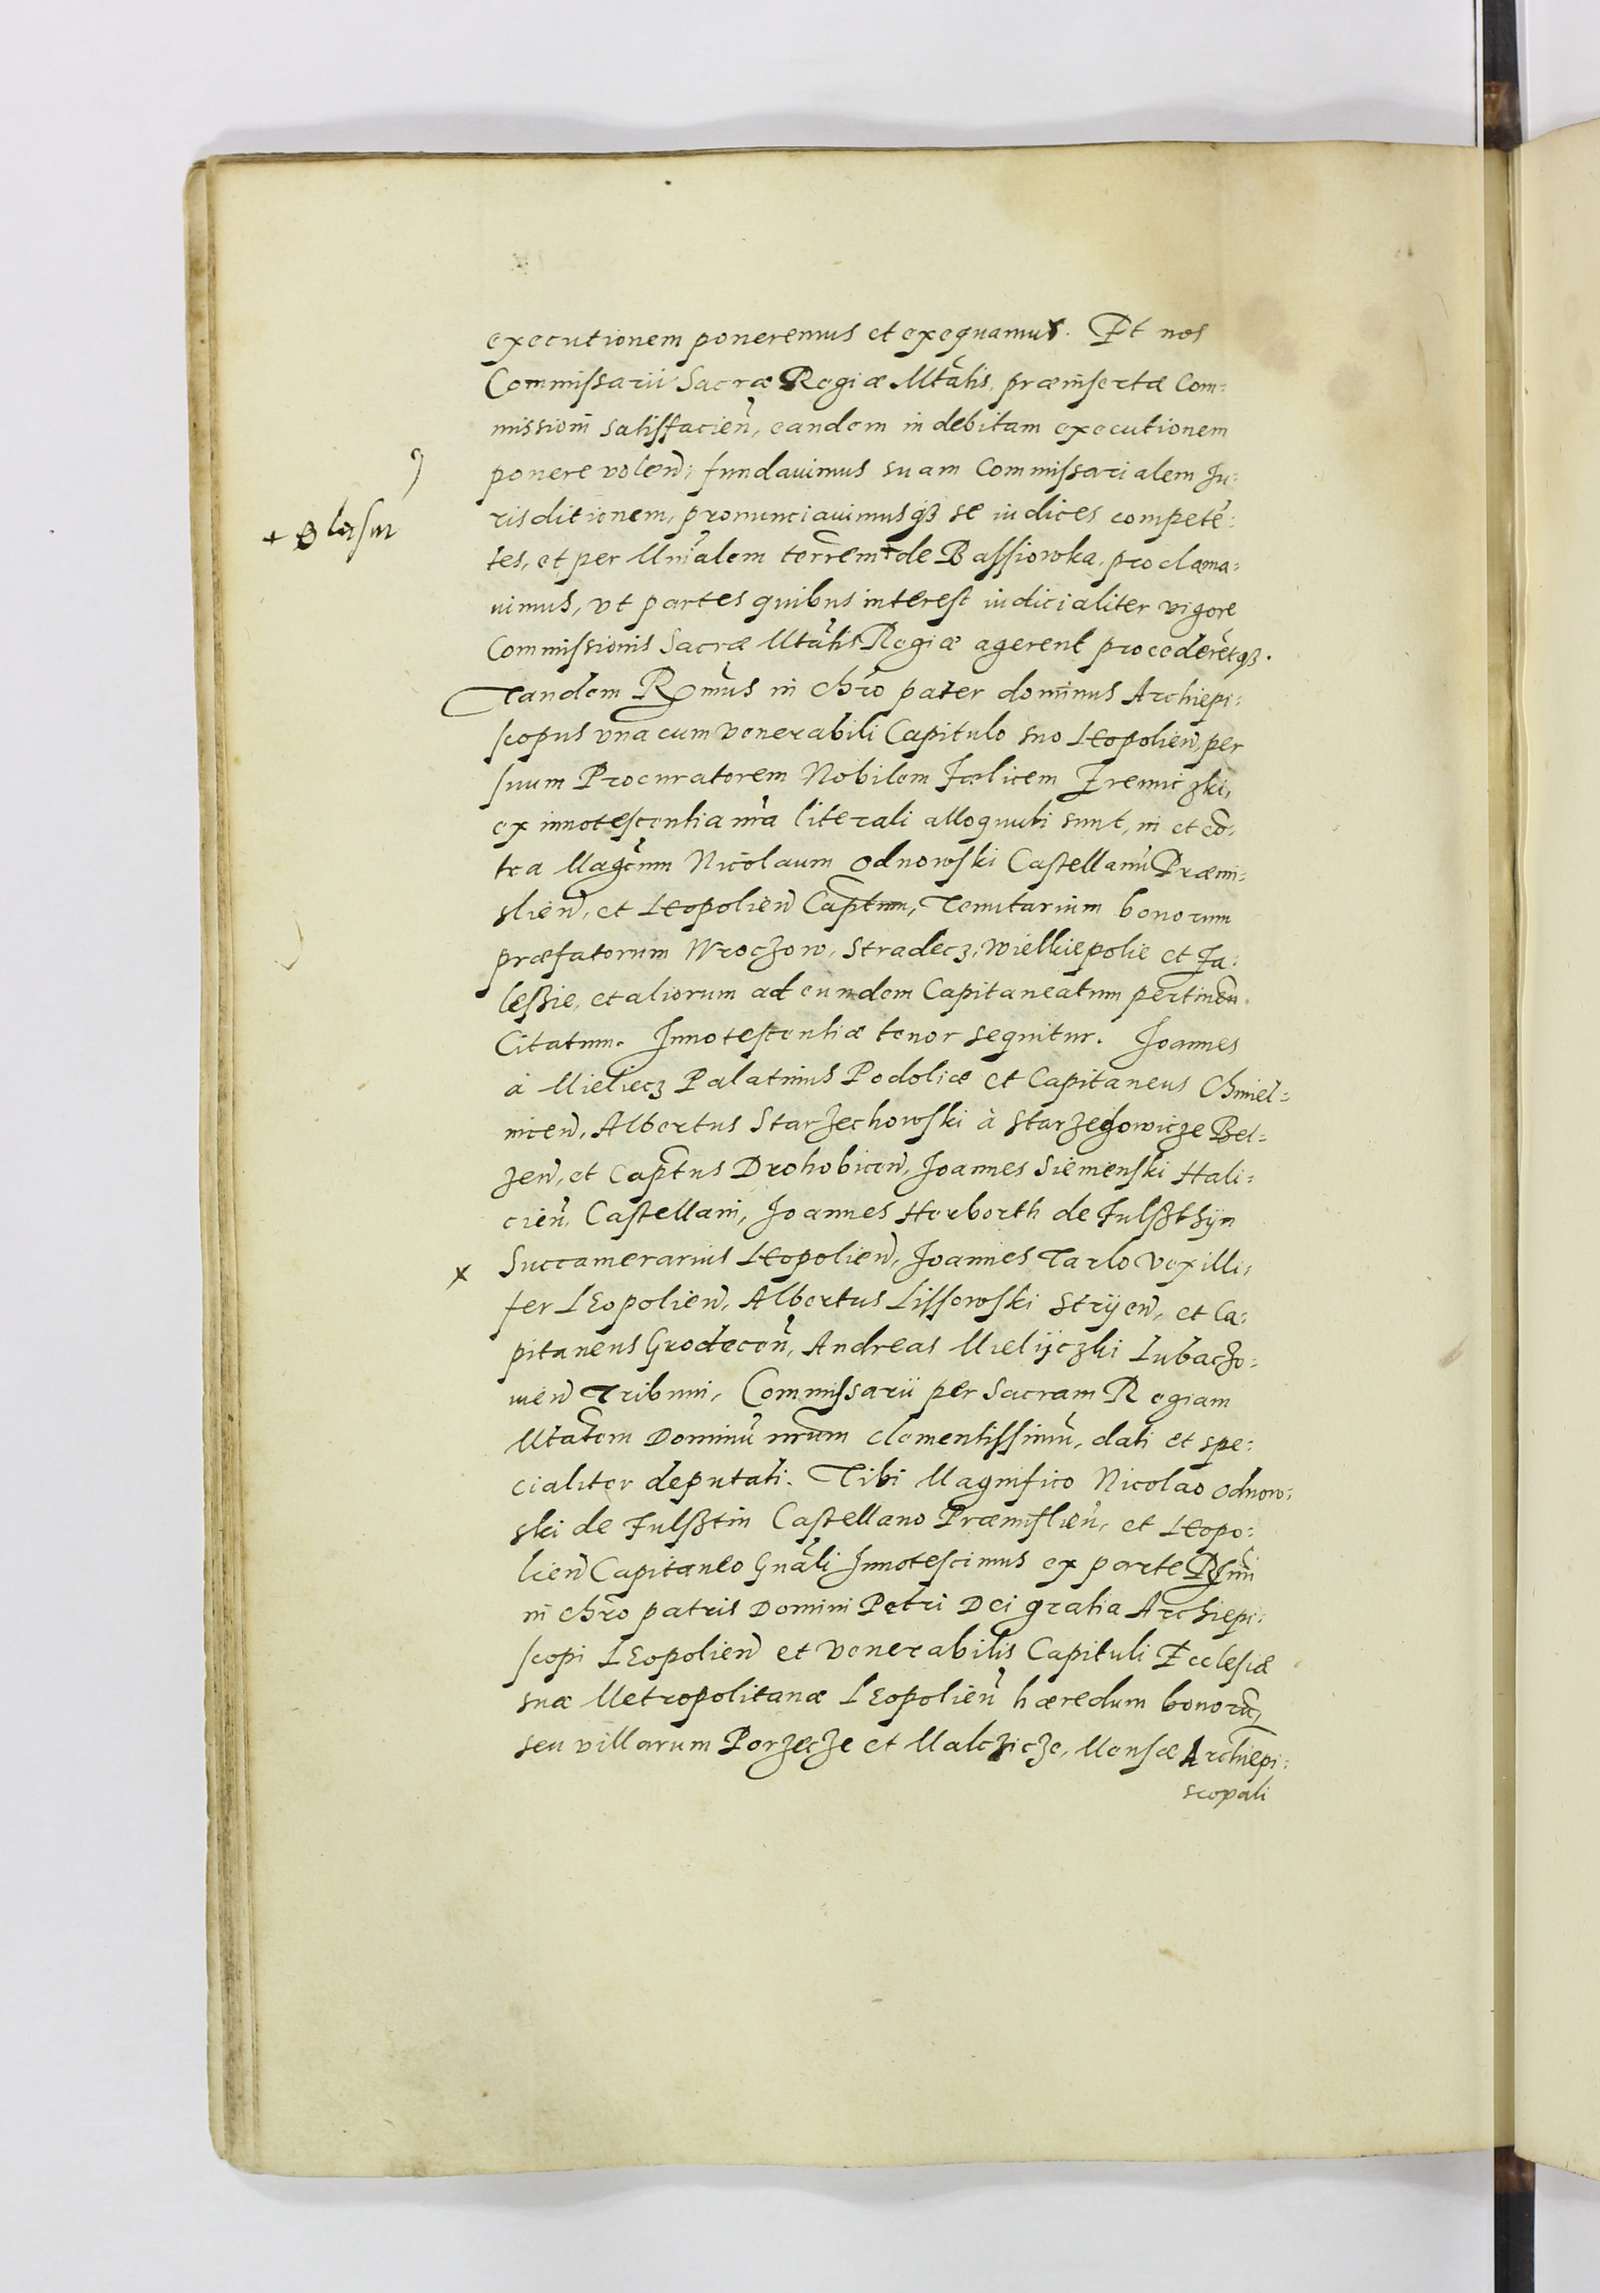 executionem poneremus et exequamur. Et nos
Commissarii Sacræ Regiæ Mtatis, præinsertæ Com-
missioni satisfacien̄, eandem in debitam executionem
ponere volen̄, fundauimus suam Commissarialem Ju-
risditionem, pronunciauimusq̃ se iudices competē-
+ Blasium
tes, et per Mn̄ialem terrem + de Bassiowka, proclama-
uimus, vt partes quibus interest iudicialiter vigore
Commissionis Sacræ Mtātis Regiæ agerent procederētq̃.
Tandem Rn̄mus in chr̄o pater dominus Archiepi-
scopus vna cum venerabili Capitulo suo Leopolien̄, per
suum Procuratorem Nobilem Fœlicem Jremiczki,
ex innotescentia nr̄a literali alloquuti sunt, in et cō-
tra Magc̄um Nicolaum Odnowski Castellanū Præmi-
slien̄, et Leopolien̄ Captn̄m, Tenutarium bonorum
præfatorum Wroczow, Stradecz, Wielkiepolie et Za-
lessie, et aliorum ad eundem Capitaneatum pertinen̄.
Citatum. Innotescentiæ tenor sequitur. Joannes
à Mieliecz Palatinus Podoliæ et Capitaneus Chmiel-
nicen̄, Albertus Starzechowski à Starzechowicze Bel-
zen̄, et Captn̄us Drohobicen̄, Joannes Siemienski Hali-
cien̄, Castellani, Joannes Herborth de Fulsßthÿn
Succamerarius Leopolien̄, Joannes Tarlo vexilli-
x
fer LEopolien̄, Albertus Lissowski Strijen̄, et Ca-
pitaneus Grodecen̄, Andreas Mielijczki Lubaczo-
uien̄ Tribuni, Commissarii per Sacram Regiam
Mtātem Dominū nr̄um clementissimū, dati et spe-
cialiter deputati. Tibi Magnifico Nicolao Odnow-
ski de Fulsßtin Castellano Præmislien̄, et Leopo-
lien̄ Capitaneo Gnāli Innotescimus ex parte Rn̄mi
in chr̄o patris Domini Petri Dei gratia Archiepi-
scopi LEopolien̄ et venerabilis Capituli Ecclesiæ
suæ Metropolitanæ LEopolien̄ hæredum bonorū,
seu villarum Porzecze et Malczicze, Mensæ Archiepi-
scopali